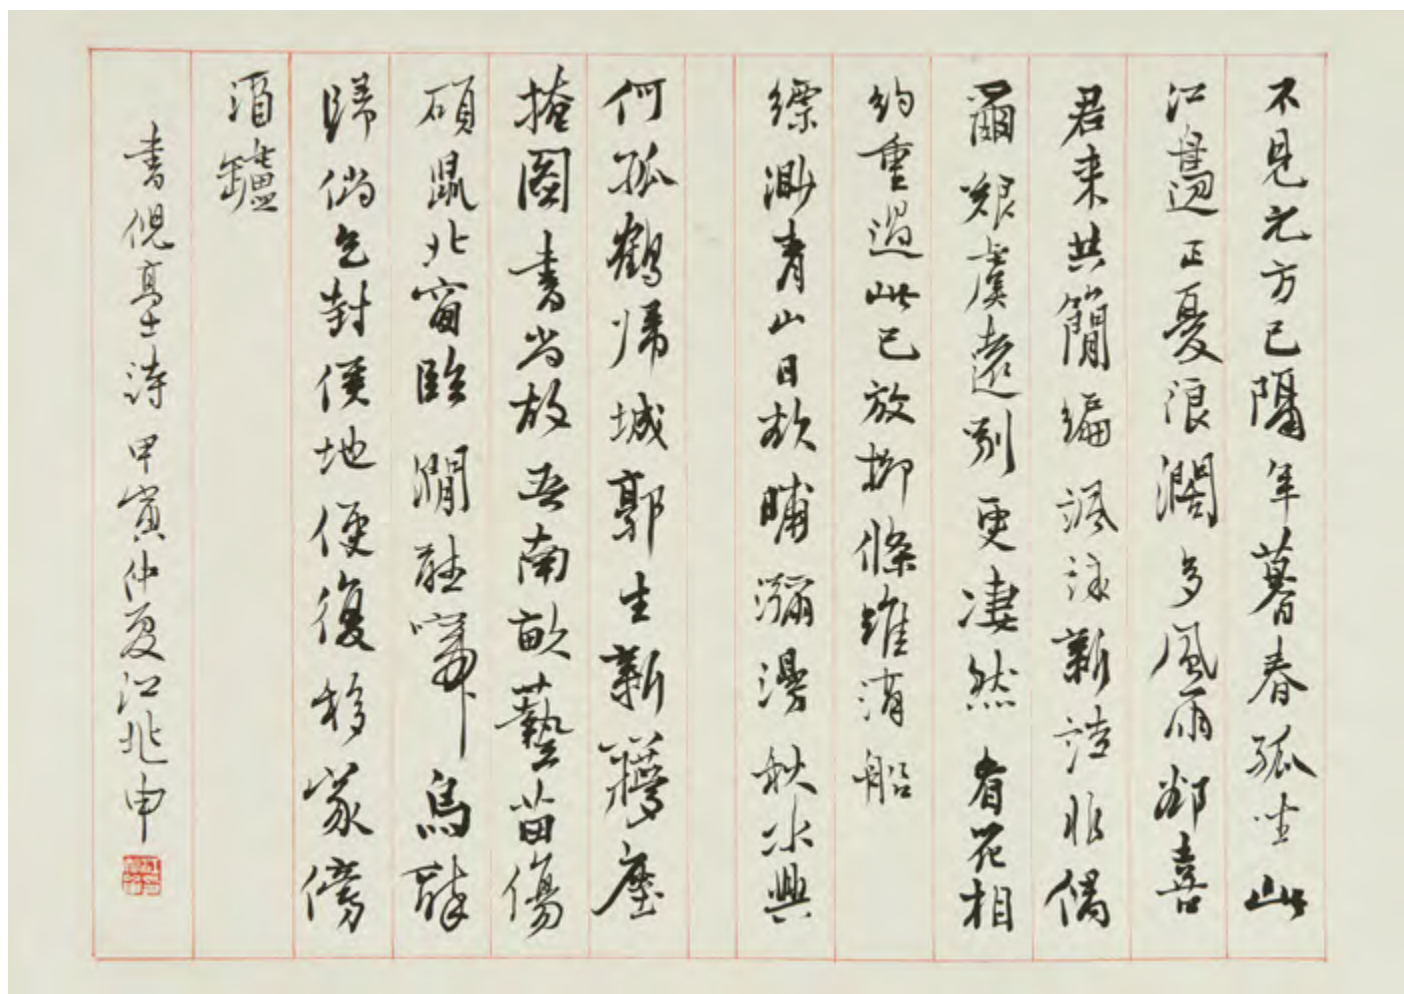 不見元方已隔年暮春孤坐此
江邊正憂浪闊多風雨卻喜
君来共簡編諷詠新詩非偶
爾艱虞遠別更凄然看花相
約重過此已放柳條維酒船
縹渺青山日欲晡瀰漫秋水興
何孤鶴歸城郭生新穫塵
掩圖書尚故吾南畝藝苗傷
碩鼠北窗臨澗聽啼烏醉
歸倘乞封侯地便復移家傍
酒罏
書倪高士詩甲寅仲夏江兆申